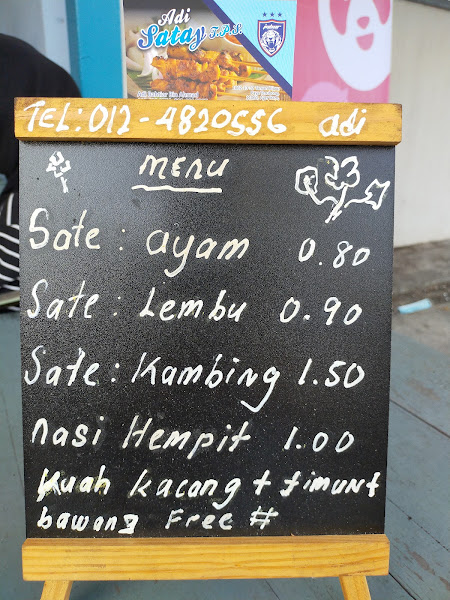 Adi
Satay T.P.S.
TEL: 012-4820556 adi
MENU
Sate: ayam 0.80
Sate: Lembu 0.90
Sate: Kambing 1.50
nasi Hempit 1.00
Kuah kacang + timunt
bawang Free #